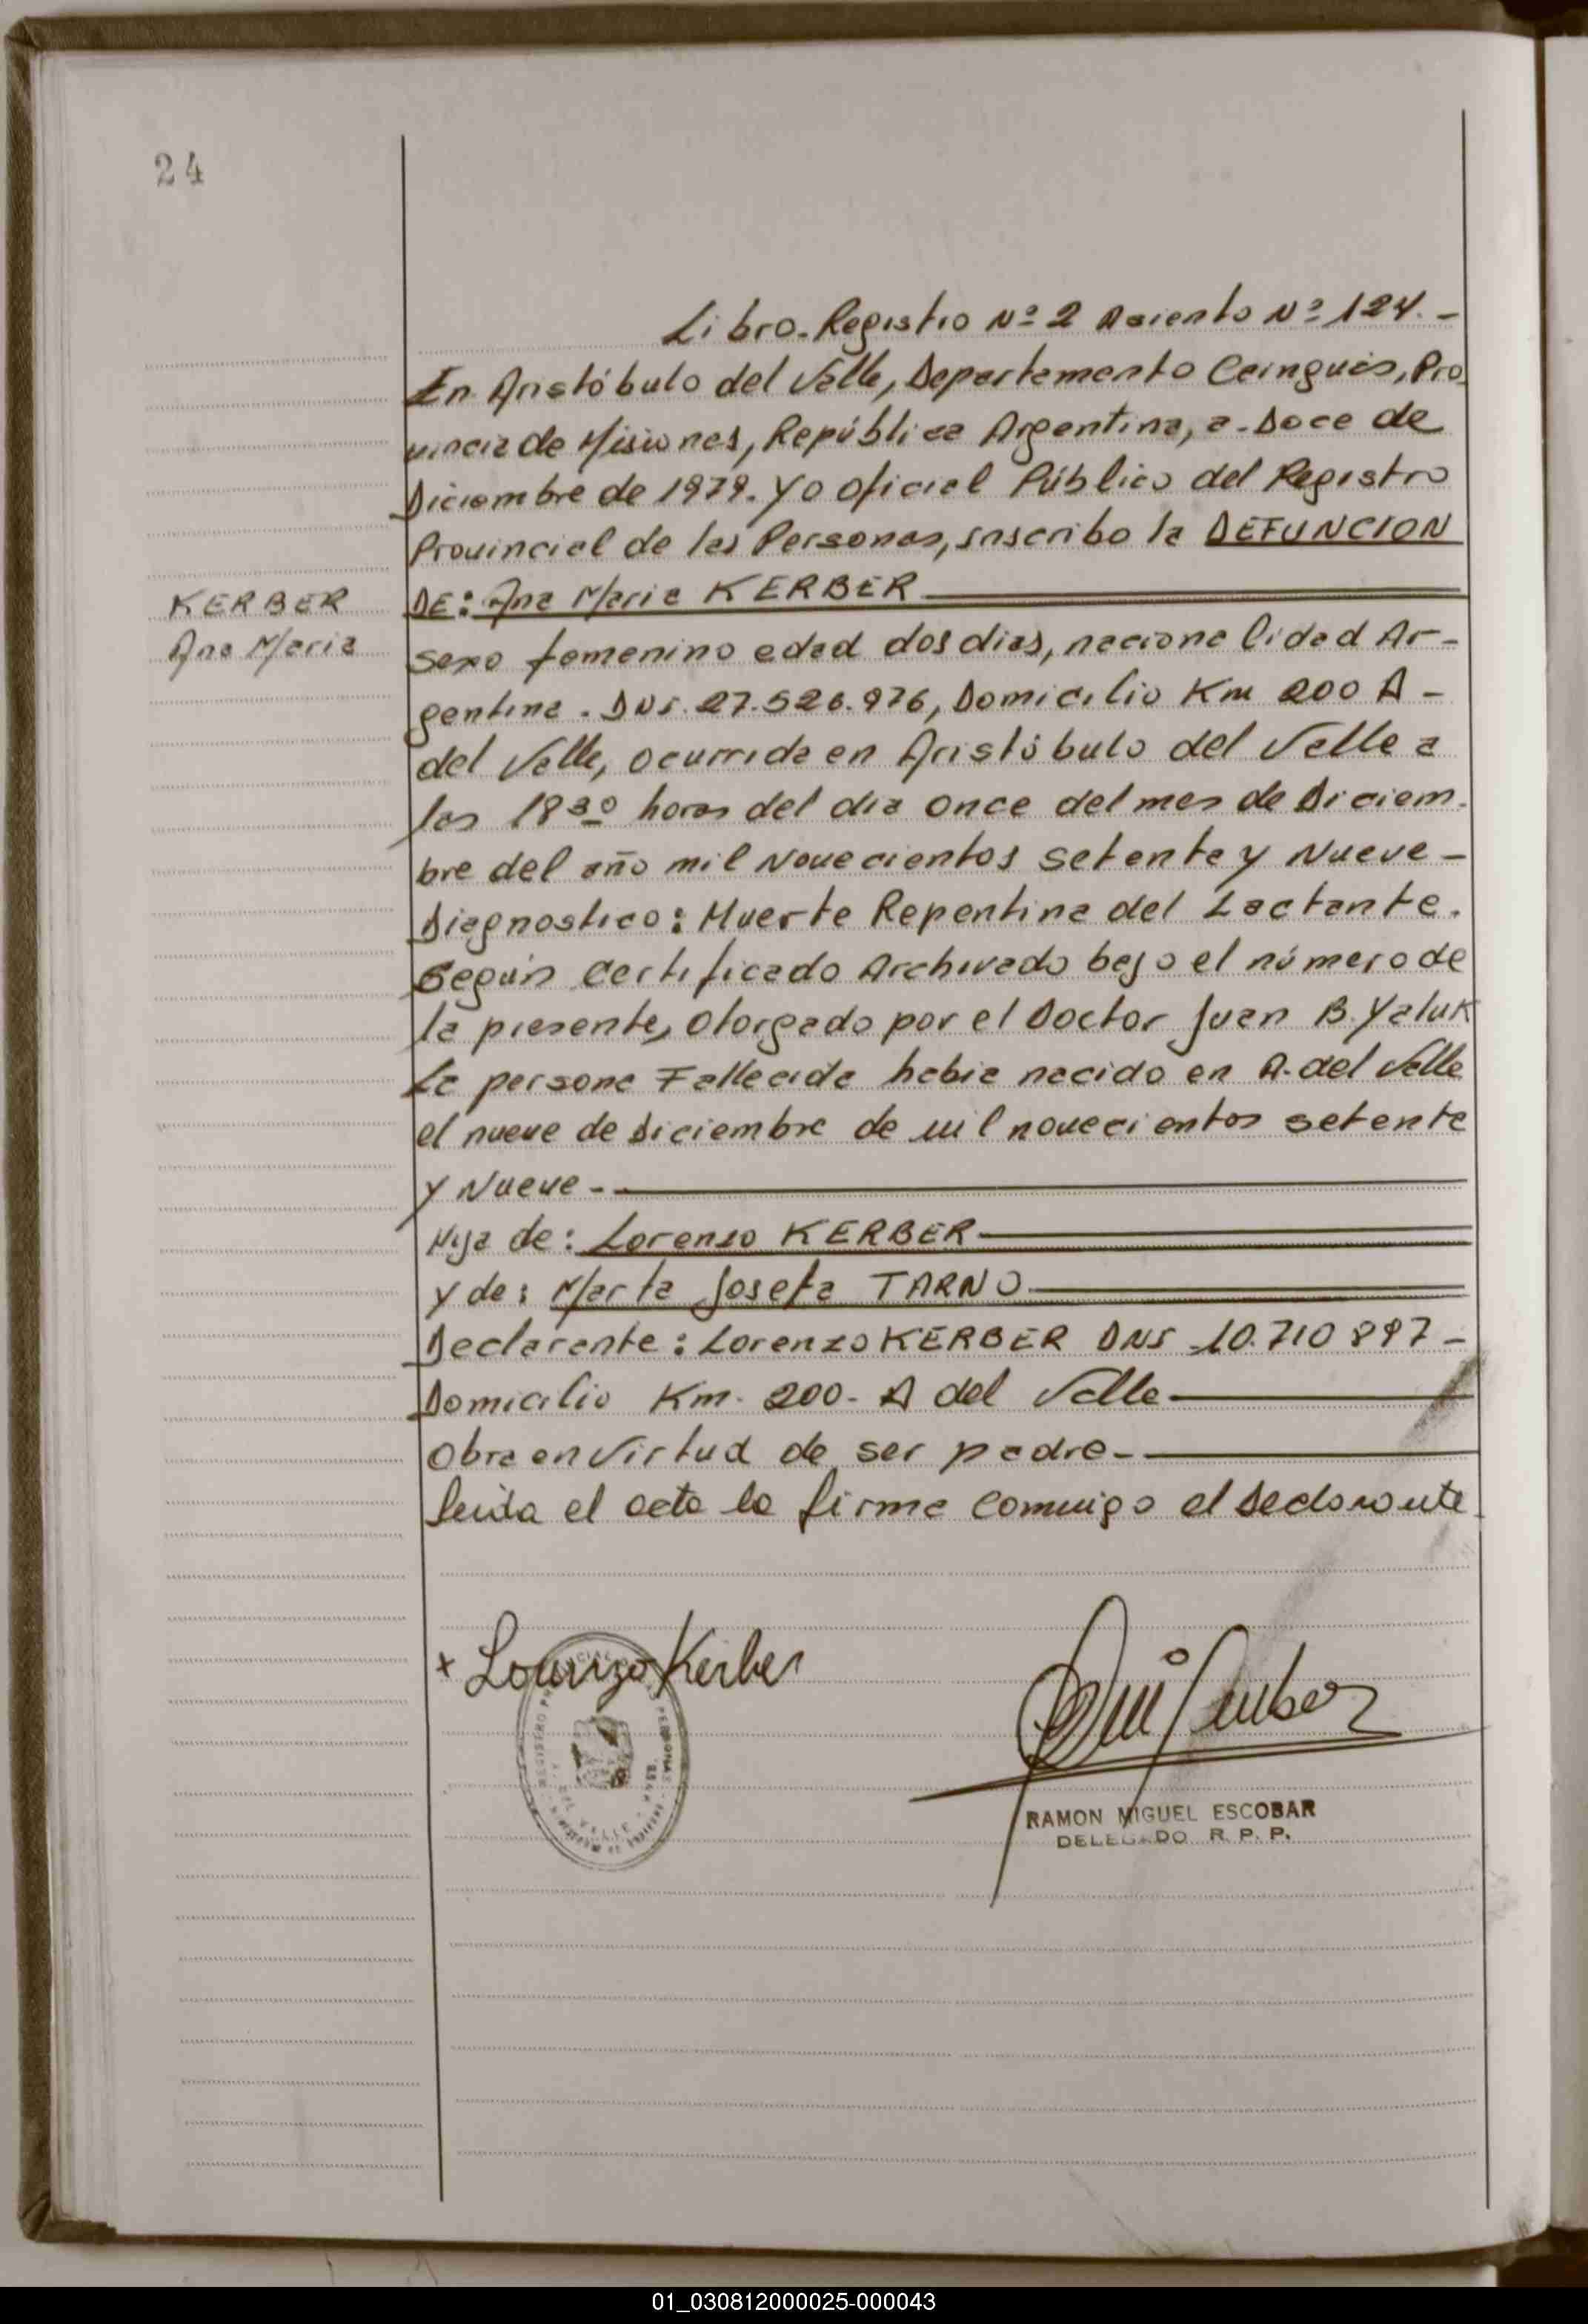 24
Libro-Registro Nº 2 Asiento Nº 124.-
En Aristóbulo del Valle, Departamento Cainguás, Pro-
vincia de Misiones, República Argentina, a-Doce de
Diciembre de 1979. Yo Oficial Público del Registro
Provincial de las Personas, inscribo la DEFUNCION
KERBER
Ana Maria
DE: Ana Maria KERBER
sexo femenino edad dos dias, nacionalidad Ar-
gentina. DNI. 27.526.976, Domicilio Km 200 A-
del Valle, ocurrida en Aristóbulo del Valle a
las 18 30 horas del dia once del mes de Diciem-
bre del año mil Novecientos setenta y Nueve-
Diagnostico: Muerte Repentina del Lactante.
Según Certificado Archivado bajo el número de
la presente, otorgado por el Doctor Juan B. Yaluk
La persona Fallecida habia nacido en A. del Valle
el nueve de Diciembre de mil novecientos setenta
y Nueve-
Hija de: Lorenzo KERBER
y de: Marta Josefa TARNO
Declarante: Lorenzo KERBER DNI 10.710 897-
Domicilio Km. 200- A del Valle
Obra en Virtud de ser padre-
leída el acta la firma conmigo el Declarante
x Lorenzo Kerber
RAMON MIGUEL ESCOBAR
DELEGADO R. P. P.
01_030812000025-000043